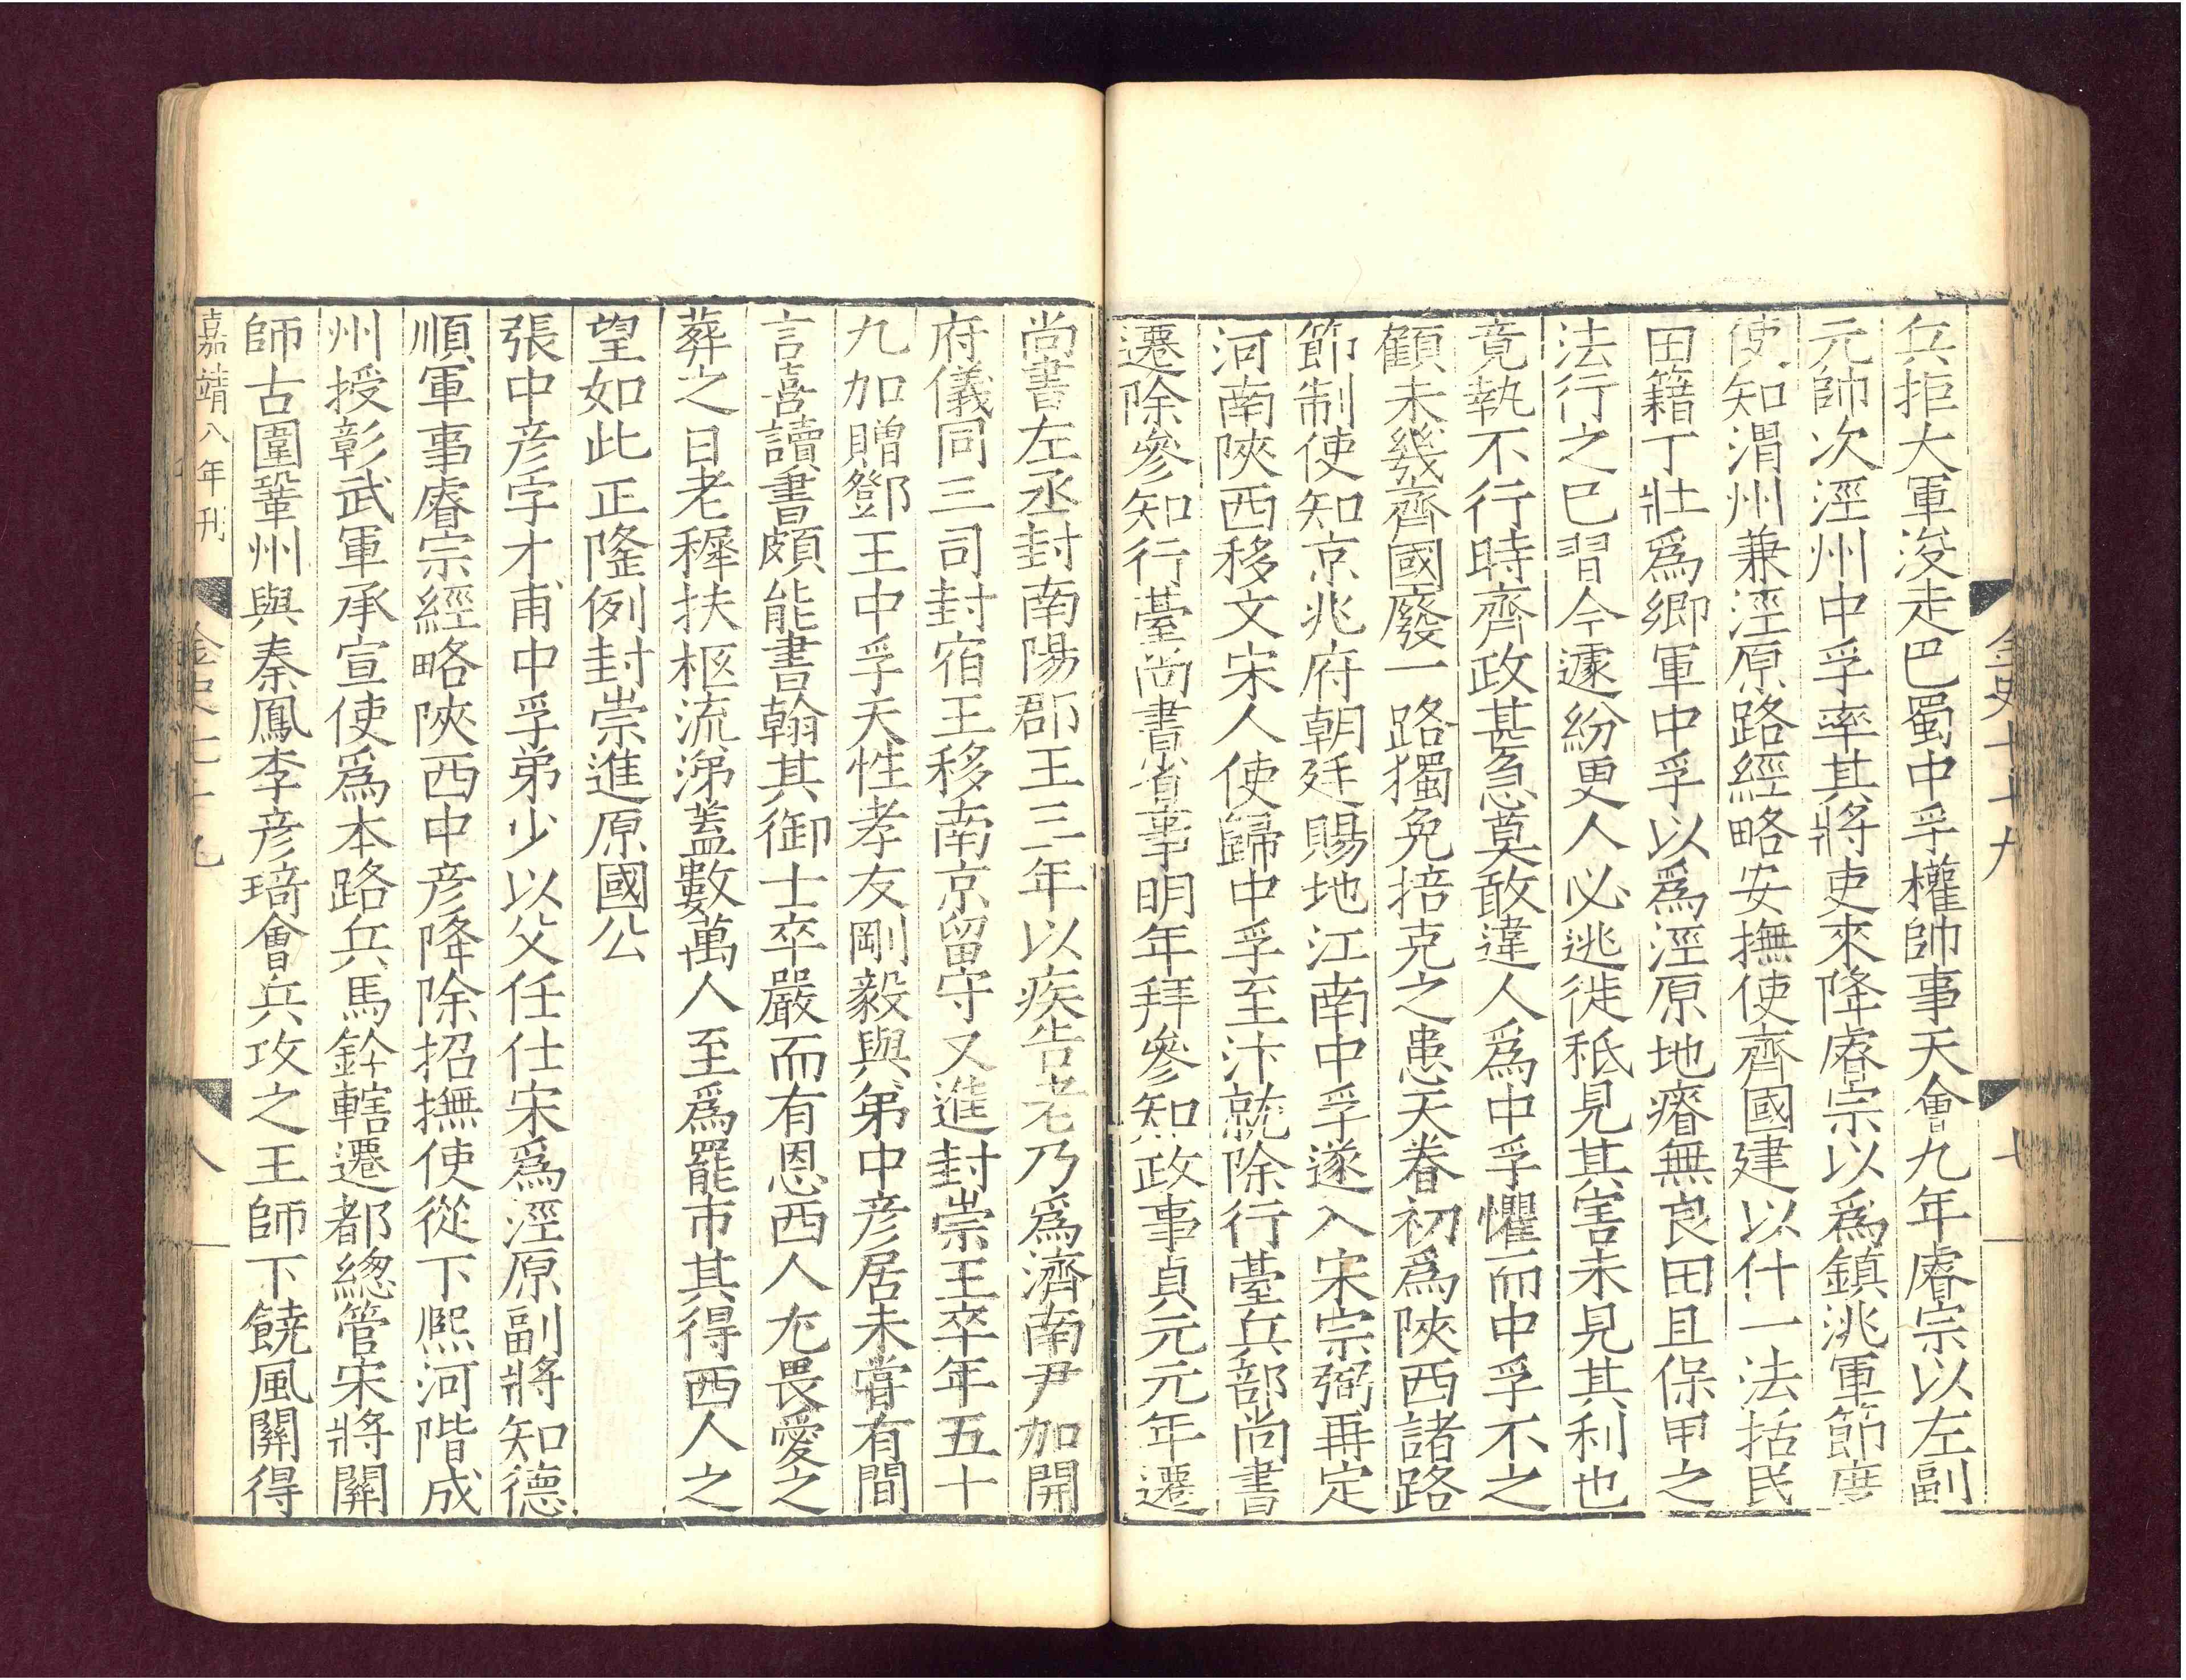 金史七十九
七
兵拒大軍浚走巴蜀中孚權帥事天會九年睿宗以左副
元帥次涇州中孚率其將吏來降睿宗以爲鎮洮軍節度
使知渭州兼涇原路經略安撫使齊國建以什一法括民
田籍丁壯爲鄉軍中孚以爲涇原地瘠無良田且保甲之
法行之已習今遽紛更人必逃徙秪見其害未見其利也
竟執不行時齊政甚急莫敢違人爲中孚懼而中孚不之
顧未幾齊國廢一路獨免掊克之患天眷初爲陜西諸路
節制使知京兆府朝廷賜地江南中孚遂入宋宗弼再定
河南陜西移文宋人使歸中孚至汴就除行臺兵部尚書
遷除參知行臺尚書省事明年拜參知政事貞元元年遷
尚書左丞封南陽郡王三年以疾告老乃爲濟南尹加開
府儀同三司封宿王移南京留守又進封崇王卒年五十
九加贈鄧王中孚天性孝友剛毅與弟中彥居未嘗有間
言喜讀書頗能書翰其御士卒嚴而有恩西人尤畏愛之
葬之日老穉扶柩流涕蓋數萬人至爲罷市其得西人之
望如此正隆例封崇進原國公
張中彥字才甫中孚弟少以父任仕宋爲涇原副將知德
順軍事睿宗經略陜西中彥降除招撫使從下熙河階成
州授彰武軍承宣使爲本路兵馬鈐轄遷都總管宋將關
師古圍鞏州與秦鳳李彥琦會兵攻之王師下饒風關得
嘉靖八年刊
金史七十九
八